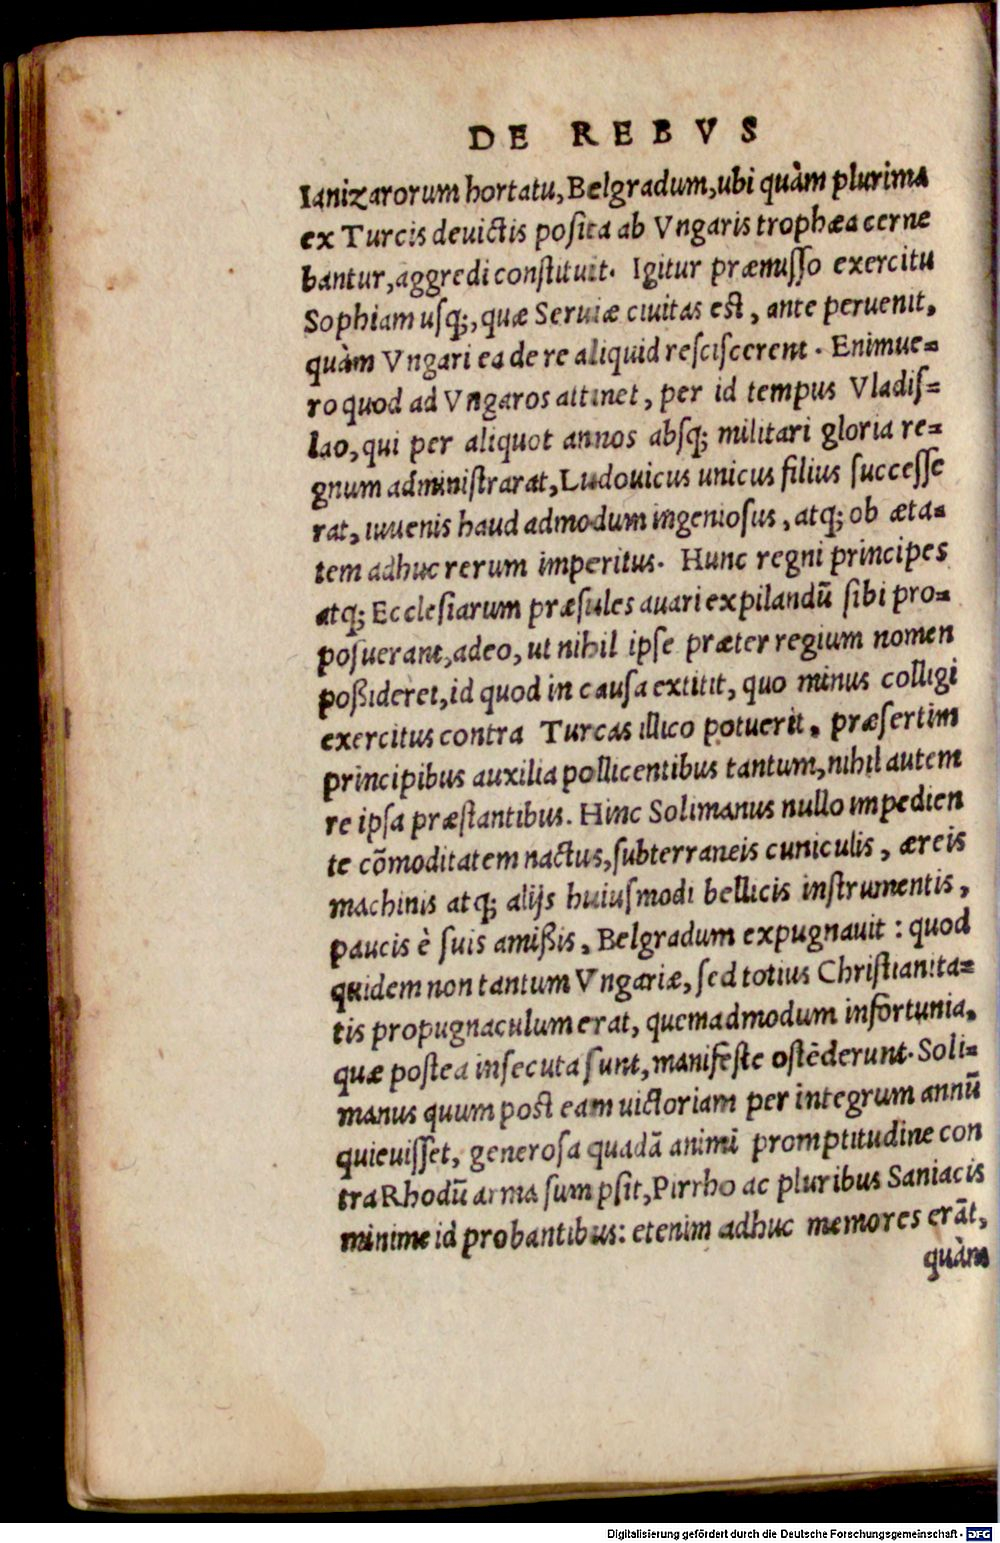 DE REBVS
Ianizarorum hortatu, Belgradum, ubi quàm plurima
ex Turcis deuictis posita ab Vngaris trophæa cerne
bantur, aggredi constituit. Igitur præmisso exercitu
Sophiam usq;, quæ Seruiæ ciuitas est, ante peruenit,
quàm Vngari ea de re aliquid resciscerent. Enimue-
ro quod ad Vngaros attinet, per id tempus Vladis-
lao, qui per aliquot annos absq; militari gloria re-
gnum administrarat, Ludouicus unicus filius successe
rat, iuuenis haud admodum ingeniosus, atq; ob æta-
tem adhuc rerum imperitus. Hunc regni principes
atq; Ecclesiarum præsules auari expilandũ sibi pro-
posuerant, adeo, ut nihil ipse præter regium nomen
poßideret, id quod in causa extitit, quo minus colligi
exercitus contra Turcas illico potuerit, præsertim
principibus auxilia pollicentibus tantum, nihil autem
re ipsa præstantibus. Hinc Solimanus nullo impedien
te cõmoditatem nactus, subterraneis cuniculis, æreis
machinis atq; alijs huiusmodi bellicis instrumentis,
paucis è suis amißis, Belgradum expugnauit: quod
quidem non tantum Vngariæ, sed totius Christianita-
tis propugnaculum erat, quemadmodum infortunia,
quæ postea insecuta sunt, manifeste ostẽderunt. Soli-
manus quum post eam uictoriam per integrum annũ
quieuisset, generosa quadã animi promptitudine con
tra Rhodũ arma sumpsit, Pirrho ac pluribus Saniacis
minime id probantibus: etenim adhuc memores erãt,
quàm
Digitalisierung gefördert durch die Deutsche Forschungsgemeinschaft - DFG